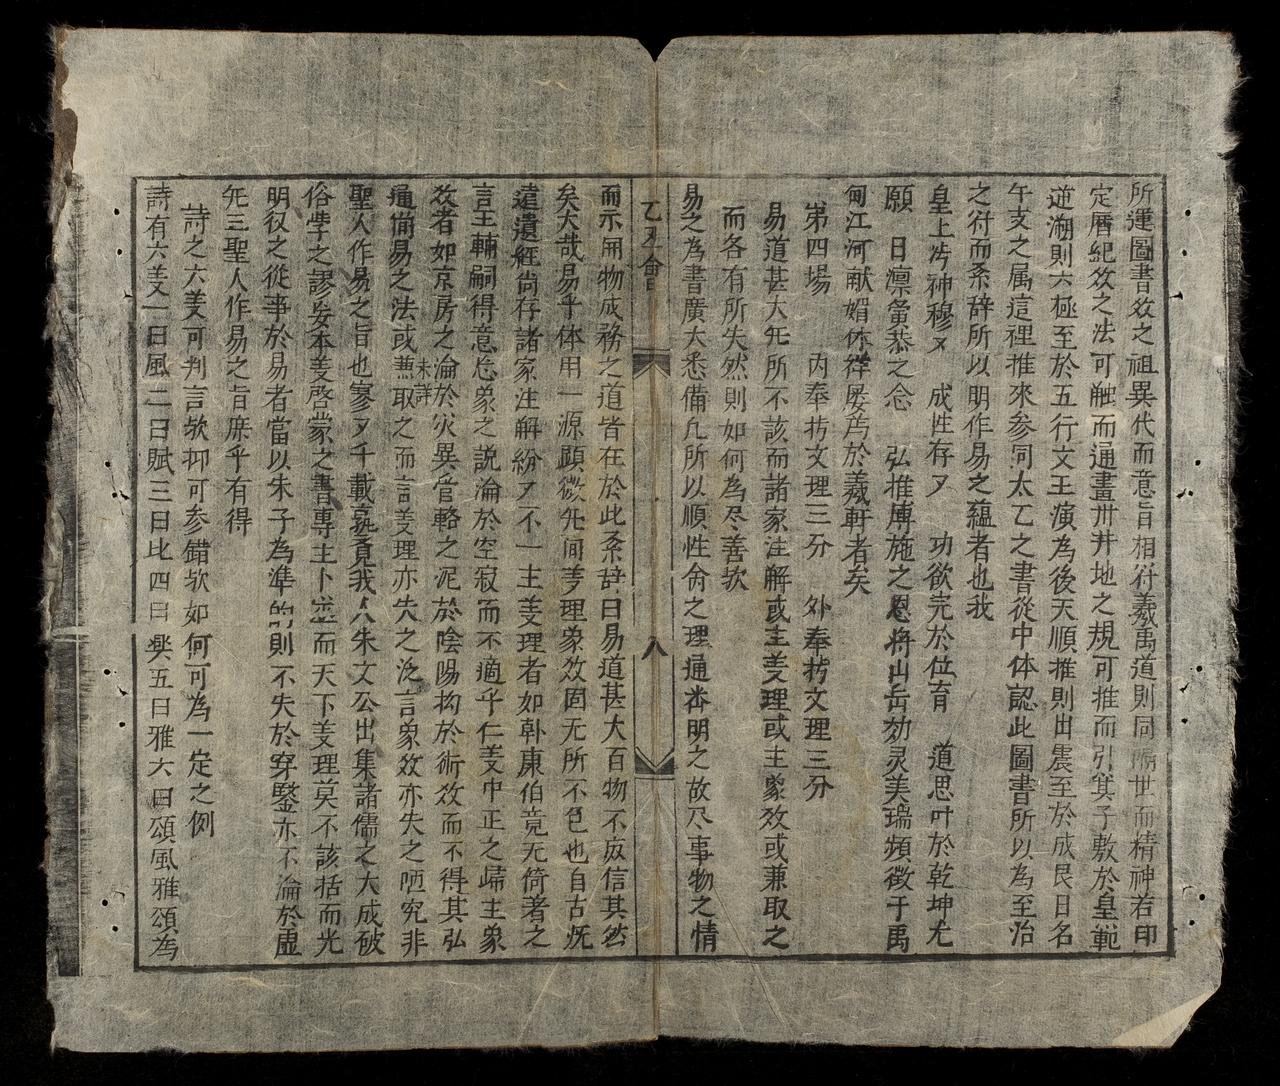 所運圖書效之祖異代而意旨相符羲禹道則同隔世而精神若印
定曆紀效之法可触而通畫卅井地之規可推而引箕子敷於皇範
逆溯則六極至於五行文王演為後天順推則出震至於成艮日名
午支之属這裡推來参同太乙之書從中体認此圖書所以為至治
之符而系辞所以明作易之蘊者也我
皇上冲神穆〻 成性存〻 功欲完於位育 道思叶於乾坤尤
願 日凛嚳恭之念 弘推慱施之恩将山岳効灵美瑞頻徵于禹
甸江河献媚休祥屡荐於羲軒者矣
第四場 内奉抄文理三分 外奉抄文理三分
易道甚大旡所不該而諸家注解或主𦍌理或主象效或兼取之
而各有所失然則如何為尽善欤
易之為書廣大悉備凡所以順性命之理通畨明之故尽事物之情
乙丑會
八
而示開物成務之道皆在於此系辞曰易道甚大百物不废信其然
矣大哉易乎体用一源顕微旡间𦍌理象效固无所不包也自古既
遠遺經尚存諸家注解紛〻不一主𦍌理者如韩康伯竟无倚著之
言王輔嗣得意忘象之説淪於空寂而不適乎仁𦍌中正之歸主象
效者如京房之淪於灾異管輅之泥於陰陽拘於術效而不得其弘
通简易之法或兼取之而言𦍌理亦失之泛言象效亦失之陋究非
未詳
聖人作易之旨也寥〻千載孰覓我人朱文公出集諸儒之大成破
俗学之謬妄本𦍌啓蒙之書專主卜筮而天下𦍌理莫不該括而光
明後之從事於易者當以朱子為準的則不失於穿鑿亦不淪於虚
旡三聖人作易之旨庶乎有得
詩之六𦍌可判言欤抑可参錯欤如何可為一定之例
詩有六𦍌一曰風二曰賦三曰比四曰興五曰雅六曰頌風雅頌為